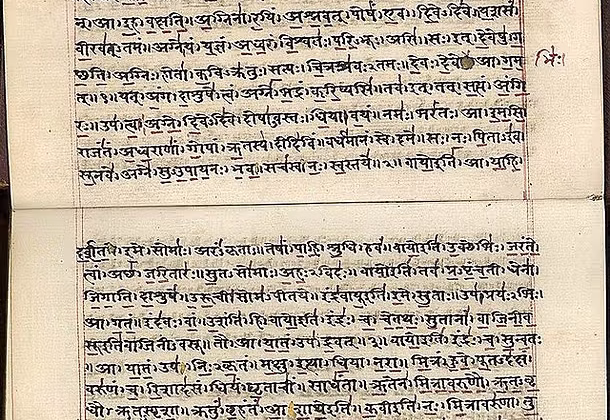 न॒ः । आ । इ॒ह । व॒क्ष॒ति॒ ॥ अ॒ग्निना॑ । र॒यिं । अ॒श्न॒व॒त् । पोषं॑ । ए॒व । दि॒वेऽदि॑वे । य॒शसं॑
वी॒रव॑त्ऽतमं ॥ अग्ने॑ । यं । य॒ज्ञं । अ॒ध्व॒रं । वि॒श्वतः॑ । प॒रि॒ऽभूः । असि॑ । सः । इत् । दे॒वेषु॑ । ग॒
च्छ॒ति॒ ॥ अ॒ग्निः । होता॑ । क॒विऽक्र॑तुः । स॒त्यः । चि॒त्रश्र॑वःऽतमः । दे॒वः । दे॒वे । आ । ग॒म॒ भिः॑ ।
त् ॥१॥ यत् । अं॒ग । दा॒शुषे॑ । त्वं । अग्ने॑ । भ॒द्रं । क॒रि॒ष्यसि॑ । तव॑ । इत् । तत् । स॒त्यं । अं॒गि॒
रः॒ ॥ उप॑ । त्वा॒ । अ॒ग्ने॒ । दि॒वेऽदि॑वे । दोषा॑ऽवस्तः । धि॒या । व॒यं । नमः॑ । भरं॑तः । आ । इ॒म॒सि॒
राजं॑तं । अ॒ध्व॒राणां॑ । गो॒पां । ऋ॒तस्य॑ । दीदि॑विं । वर्ध॑मानं । स्वे । दमे॑ ॥ सः । नः॒ । पि॒ताऽइ॑व
सू॒नवे॑ । अग्ने॑ । सु॒ऽउ॒पा॒य॒नः । भ॒व॒ । सच॑स्व । नः॒ । स्व॒स्तये॑ ॥२॥ वायो॒ इति॑ । आ । या॒हि॒
द॒र्श॒त॒ । इ॒मे । सोमाः॑ । अरं॑ऽकृताः ॥ तेषां॑ । पा॒हि॒ । श्रु॒धि । हवं॑ ॥ वायो॒ इति॑ । उ॒क्थेभिः॑ । ज॒रं॒ते॒
त्वां । अच्छ॑ । ज॒रि॒तारः॑ । सु॒तऽसो॑माः । अ॒हः॒ऽविदः॑ ॥ वायो॒ इति॑ । तव॑ । प्र॒ऽपृं॒च॒ती । धेना॑
जि॒गा॒ति॒ । दा॒शुषे॑ । उ॒रू॒ची । सोम॑ऽपीतये ॥ इंद्र॑वायू॒ इति॑ । इ॒मे । सु॒ताः । उप॑ । प्रयः॑ऽभिः ।
आ । ग॒तं॒ । इंद॑वः । वां॒ । उ॒शंति॑ । हि ॥ वायो॒ इति॑ । इंद्रः॑ । च॒ । चे॒त॒थः॒ । सु॒तानां॑ । वा॒जि॒नी॒व॒
सू॒ इति॑ वाजिनीऽवसू । तौ । आ । या॒तं॒ । उप॑ । द्र॒वत् ॥३॥ वायो॒ इति॑ । इंद्रः॑ । च॒ । सु॒न्व॒तः
। आ । या॒तं॒ । उप॑ । निः॒ऽकृ॒तं । म॒क्षु । इ॒त्था । धि॒या । न॒रा॒ ॥ मि॒त्रं । हु॒वे॒ । पू॒तऽद॑क्षं
वरु॑णं । च॒ । रि॒शाद॑सं । धियं॑ । घृ॒ताचीं॑ । साधं॑ता ॥ ऋ॒तेन॑ । मि॒त्रा॒व॒रु॒णौ॒ । ऋ॒त॒ऽवृ॒
धौ॒ । ऋ॒त॒ऽस्पृ॒शा॒ । क्रतुं॑ । बृ॒हंतं॑ । आ॒शा॒थे॒ इति॑ ॥ क॒वी इति॑ । नः॒ । मि॒त्रावरु॑णा । तु॒